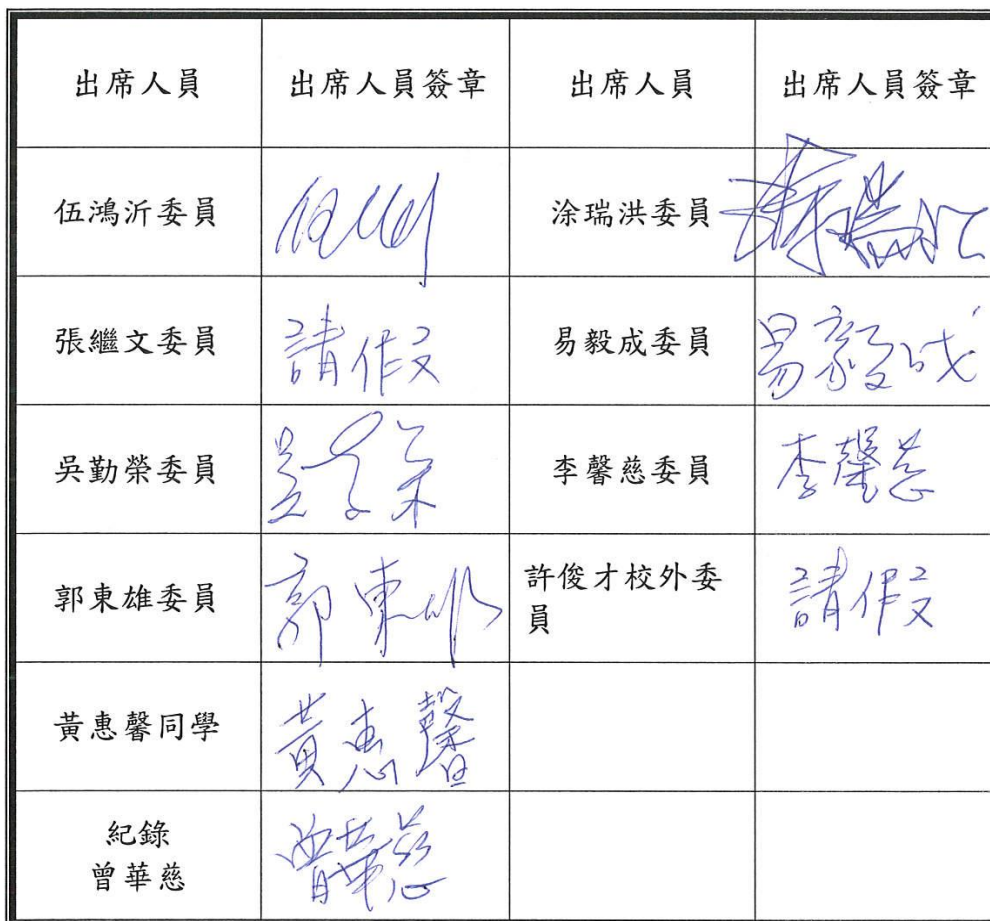 出席人員 出席人員簽章 出席人員 出席人員簽章
伍鴻沂委員 涂瑞洪委員
張繼文委員 請假 易毅成委員 易毅成
吳勤榮委員 李馨慈委員 李馨慈
郭東雄委員 郭東雄 許俊才校外委
員 請假
黃惠馨同學 黃惠馨
紀錄
曾華慈 曾華慈